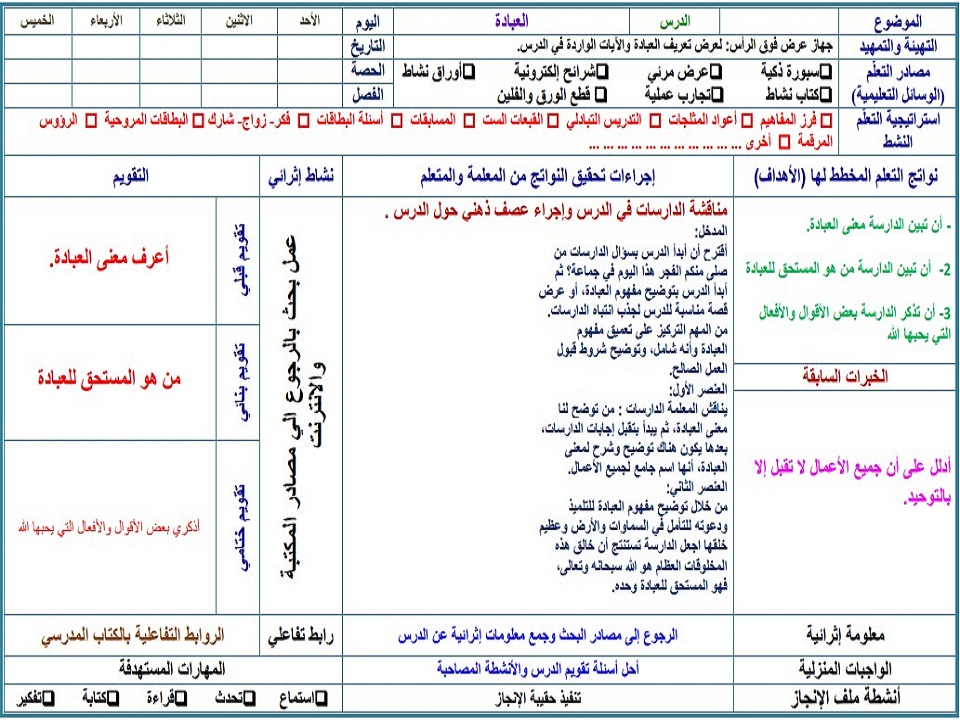 الموضوع
الدرس
العبادة
اليوم
الأحد
الاثنين
الثلاثاء
الأربعاء
الخميس
التهيئة والتمهيد
جهاز عرض فوق الرأس: لعرض تعريف العبادة والآيات الواردة في الدرس.
التاريخ
مصادر التعلّم
(الوسائل التعليمية)
❑سبورة ذكية ❑عرض مرئي ❑شرائح إلكترونية ❑أوراق نشاط
❑كتاب نشاط ❑تجارب عملية ❑ قطع الورق والفلين
الحصة
الفصل
استراتيجية التعلّم
النشط
❑ فرز المفاهيم ❑ أعواد المثلجات ❑ التدريس التبادلي ❑ القبعات الست ❑ المسابقات ❑ أسئلة البطاقات ❑ فكر- زواج- شارك ❑ البطاقات المروحية ❑ الرؤوس
المرقمة ❑ أخرى ... ... ... ... ... ... ... ... ... ... ...
نواتج التعلم المخطط لها (الأهداف)
إجراءات تحقيق النواتج من المعلمة والمتعلم
نشاط إثرائي
التقويم
- أن تبين الدارسة معنى العبادة.
2- أن تبين الدارسة من هو المستحق للعبادة
3- أن تذكر الدارسة بعض الأقوال والأفعال
التي يحبها الله
الخبرات السابقة
أدلل على أن جميع الأعمال لا تقبل إلا
بالتوحيد.
مناقشة الدارسات في الدرس وإجراء عصف ذهني حول الدرس .
المدخل:
أقترح أن أبدأ الدرس بسؤال الدارسات من
صلى منكم الفجر هذا اليوم في جماعة؟ ثم
أبدأ الدرس بتوضيح مفهوم العبادة، أو عرض
قصة مناسبة للدرس لجذب انتباه الدارسات.
من المهم التركيز على تعميق مفهوم
العبادة وأنه شامل، وتوضيح شروط قبول
العمل الصالح.
العنصر الأول:
يناقش المعلمة الدارسات : من توضح لنا
معنى العبادة، ثم يبدأ بتقبل إجابات الدارسات،
بعدها يكون هناك توضيح وشرح لمعنى
العبادة، أنها اسم جامع لجميع الأعمال.
العنصر الثاني:
من خلال توضيح مفهوم العبادة للتلميذ
ودعوته للتأمل في السماوات والأرض وعظيم
خلقها اجعل الدارسة تستنتج أن خالق هذه
المخلوقات العظام هو الله سبحانه وتعالى،
فهو المستحق للعبادة وحده.
عمل بحث بالرجوع الي مصادر المكتبة
والانترنت
تقويم قبلي
أعرف معنى العبادة.
تقويم بنائي
من هو المستحق للعبادة
تقويم ختامي
أذكري بعض الأقوال والأفعال التي يحبها الله
معلومة إثرائية
الرجوع إلى مصادر البحث وجمع معلومات إثرائية عن الدرس
رابط تفاعلي
الروابط التفاعلية بالكتاب المدرسي
الواجبات المنزلية
أحل أسئلة تقويم الدرس والأنشطة المصاحبة
المهارات المستهدفة
أنشطة ملف الإنجاز
تنفيذ حقيبة الإنجاز
❑استماع ❑تحدث ❑قراءة ❑كتابة ❑تفكير